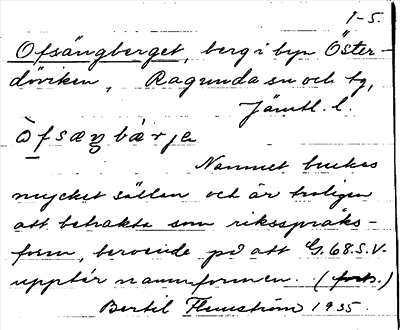 1-5.
Ofsängberget, berg i byn Öster-
döviken, Ragunda sn och tg,
Jämtl. l.
Namnet brukas
mycket sällan och är troligen
att betrakta som riksspråks-
form, beroende på att G. 68.S.V.
upptar namnformen. (forts.)
Bertil Flemström 1935.